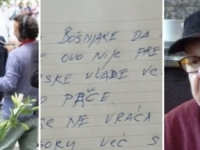 BOŠNJAKE DA
OVO NIJE PRE
SKE VLADE VC
PAČE.
NE VRAĆA
GORU VEĆ S